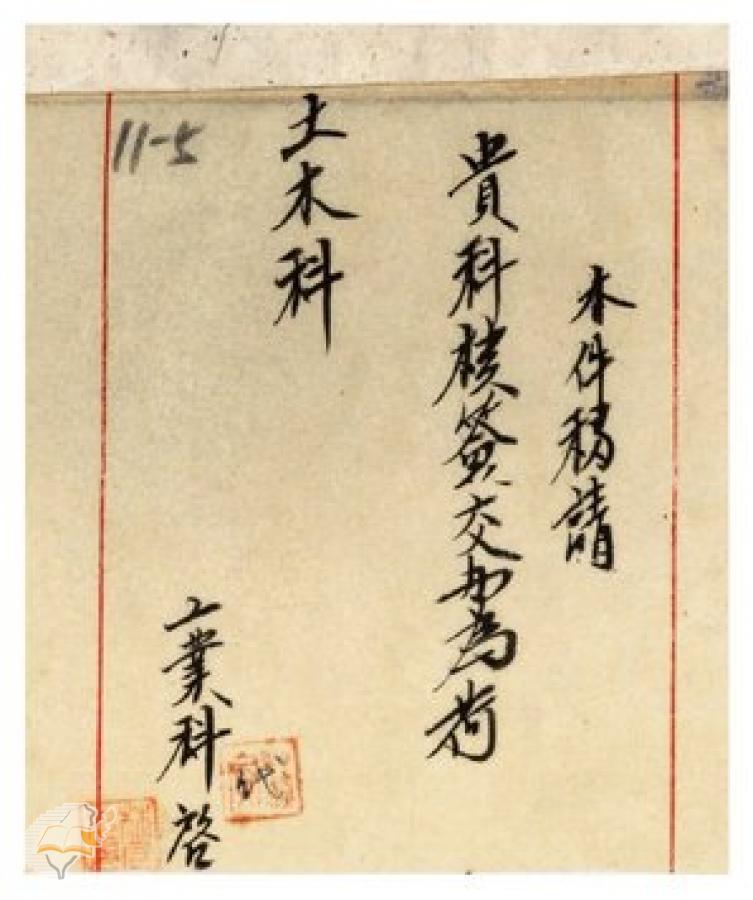 本件稿請
貴科核簽交還為荷
土木科
11-5
工業科啓
代